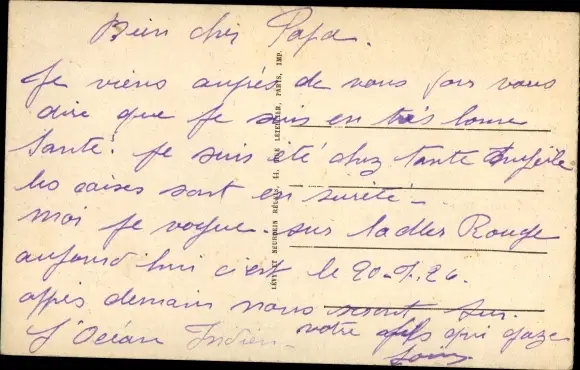 Bien cher Papa.
Je viens auprès de vous pour vous
dire que je suis en très bonne
Santé. je suis été chez tante
les caises sont en sureté -
moi je vogue. sur la Mer Rouge
aujourd hui c'est le 20-9-26.
après demain nous seront sur.
L'Océan Indien -
votre fils qui
LÉVY ET NEURDEIN RÉUNIS, 44, RUE LETELLIER, PARIS, IMP.